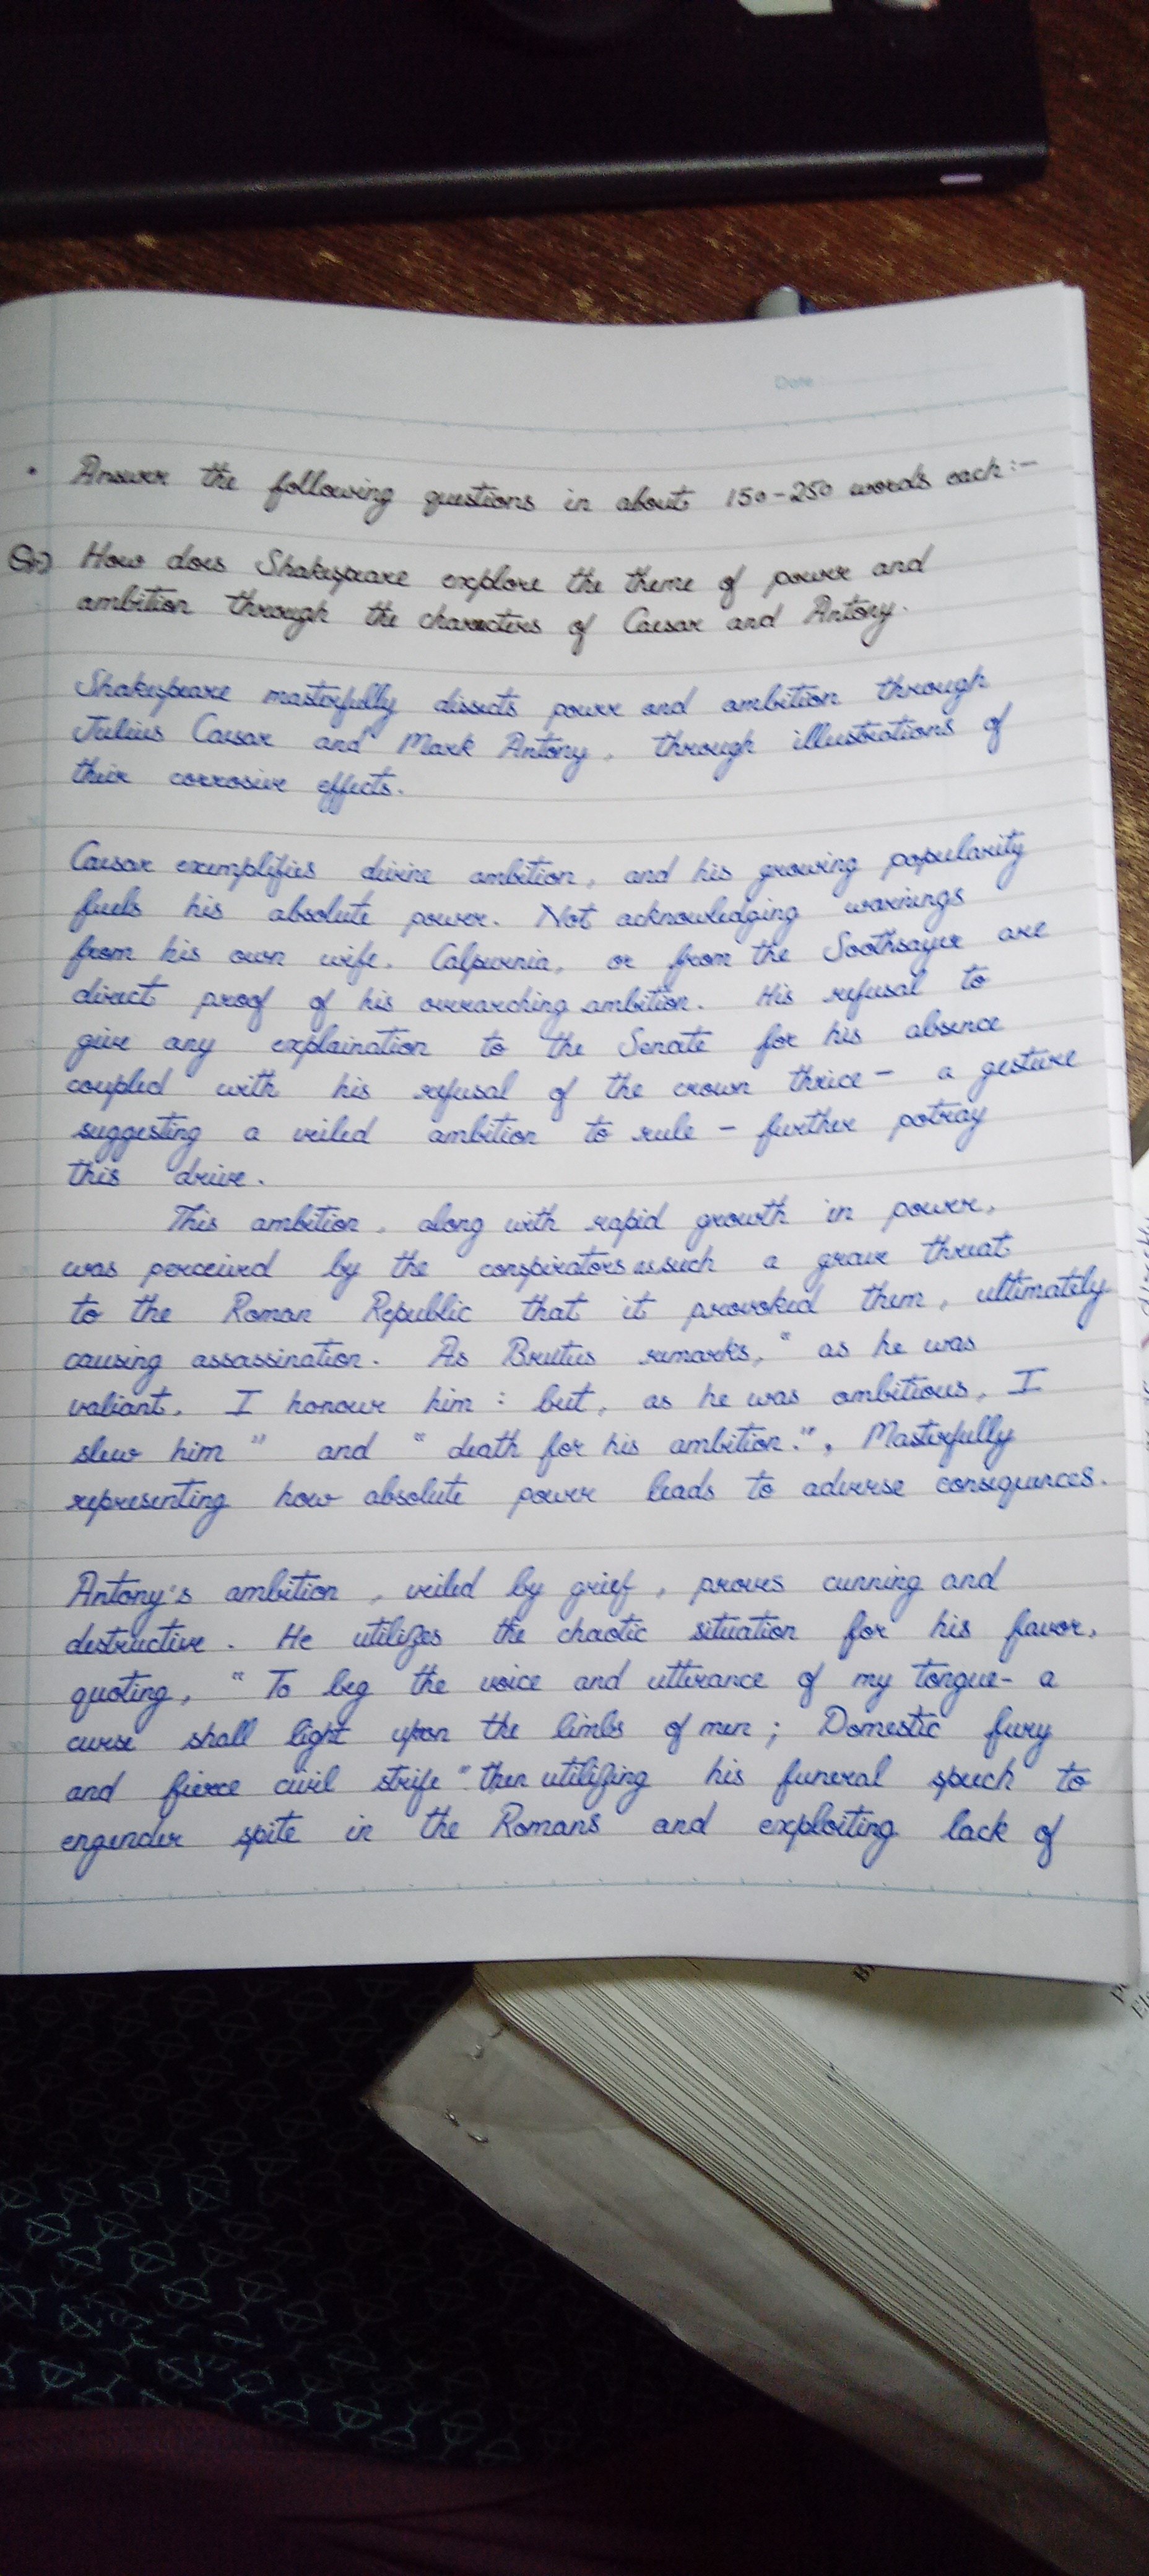 Date
• Answer the following questions in about 150-250 words each:-
How does Shakespeare explore the theme of power and
ambition through the characters of Caesar and Antony.
Shakespeare masterfully dissects power and ambition through
Julius Caesar and Mark Antony, through illustrations of
their corrosive effects.
Caesar exemplifies divine ambition, and his growing popularity
fuels his absolute power. Not acknowledging warnings
from his own wife, Calpurnia, or from the Soothsayer are
direct proof of his overarching ambition. His refusal to
give any explaination to the Senate for his absence
coupled with his refusal of the crown thrice - a gesture
suggesting a veiled ambition to rule - further potray
this drive.
This ambition, along with rapid growth in power,
was perceived by the conspirators as such a grave threat
to the Roman Republic that it provoked them, ultimately
causing assassination. As Brutus remarks, "as he was
valiant, I honour him : but, as he was ambitious, I
slew him" and "death for his ambition.", Masterfully
representing how absolute power leads to adverse consequences.
Antony's ambition, veiled by grief, proves cunning and
destructive. He utilizes the chaotic situation for his favor,
quoting, "To beg the voice and utterance of my tongue- a
curse shall light upon the limbs of men; Domestic fury
and fierce civil strife" then utilizing his funeral speech to
engender spite in the Romans and exploiting lack of